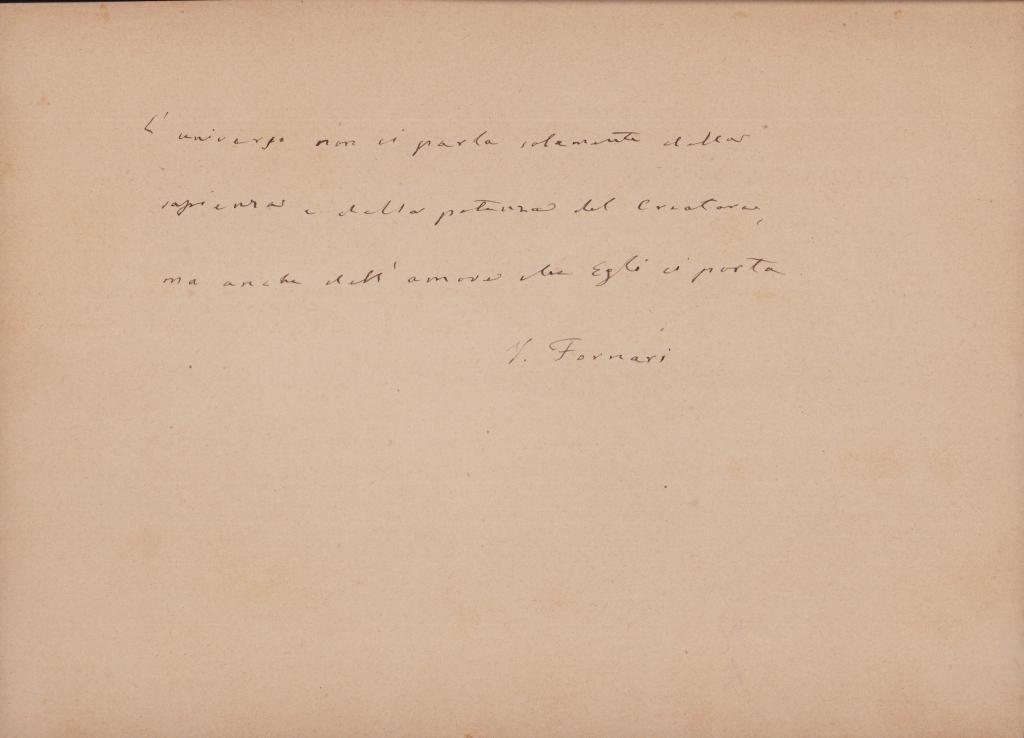 L'universo non ci parla solamente della
sapienza e della potenza del Creatore,
ma anche dell'amore che Egli ci porta
V. Fornari